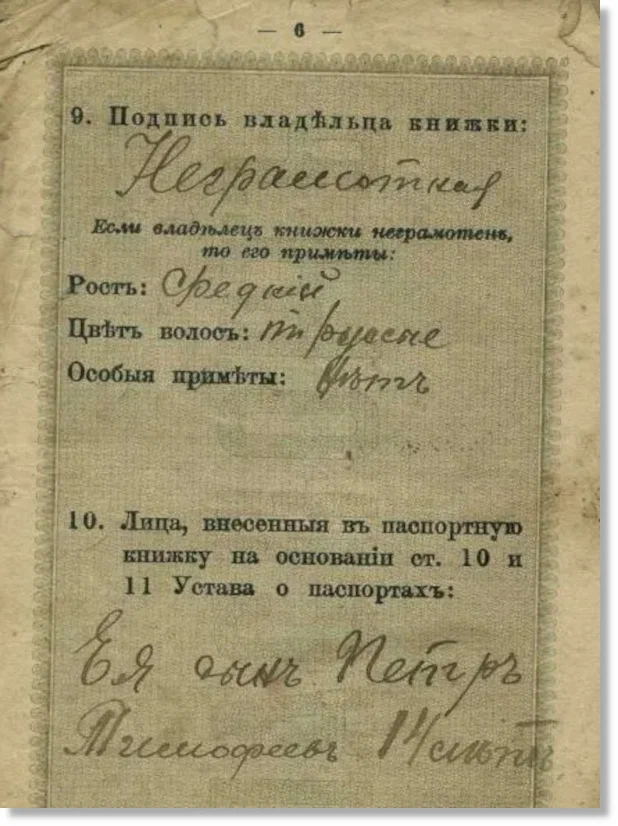 — 6 —
9. Подпись владѣльца книжки:
Неграмотная
Если владѣлецъ книжки неграмотенъ,
то его примѣты:
Ростъ: Средній
Цвѣтъ волосъ: т русые
Особыя примѣты: нѣтъ
10. Лица, внесенныя въ паспортную
книжку на основаніи ст. 10 и
11 Устава о паспортахъ:
Ея сынъ Петръ
Тимофеевъ 14 лѣтъ